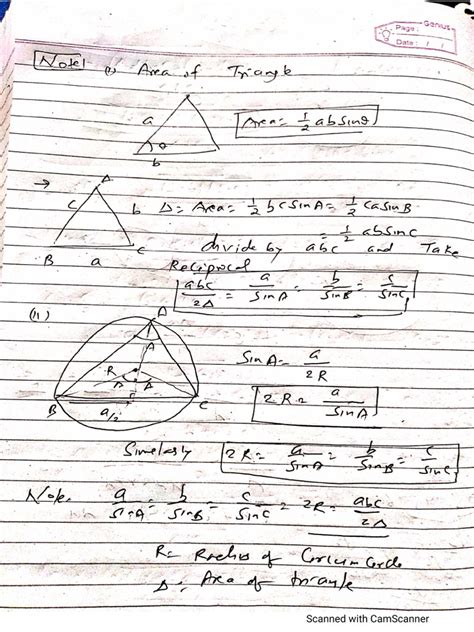 Genius
Page:
Date: / /
Note1 (i) Area of Triangle
a
θ
b
Area = 1/2 ab sinθ
→
A
c b
B a C
Δ = Area = 1/2 bc sinA = 1/2 ca sinB
= 1/2 ab sinC
divide by abc and Take
Reciprocal
abc/2Δ = a/SinA = b/SinB = c/SinC
(ii)
A
A
R
A A
B a/2 C
SinA = a/2R
2R = a/SinA
Similarly 2R = a/SinA = b/SinB = c/SinC
Note. a/SinA = b/SinB = c/SinC = 2R = abc/2Δ
R = Radius of Circum Circle
Δ = Area of triangle
Scanned with CamScanner